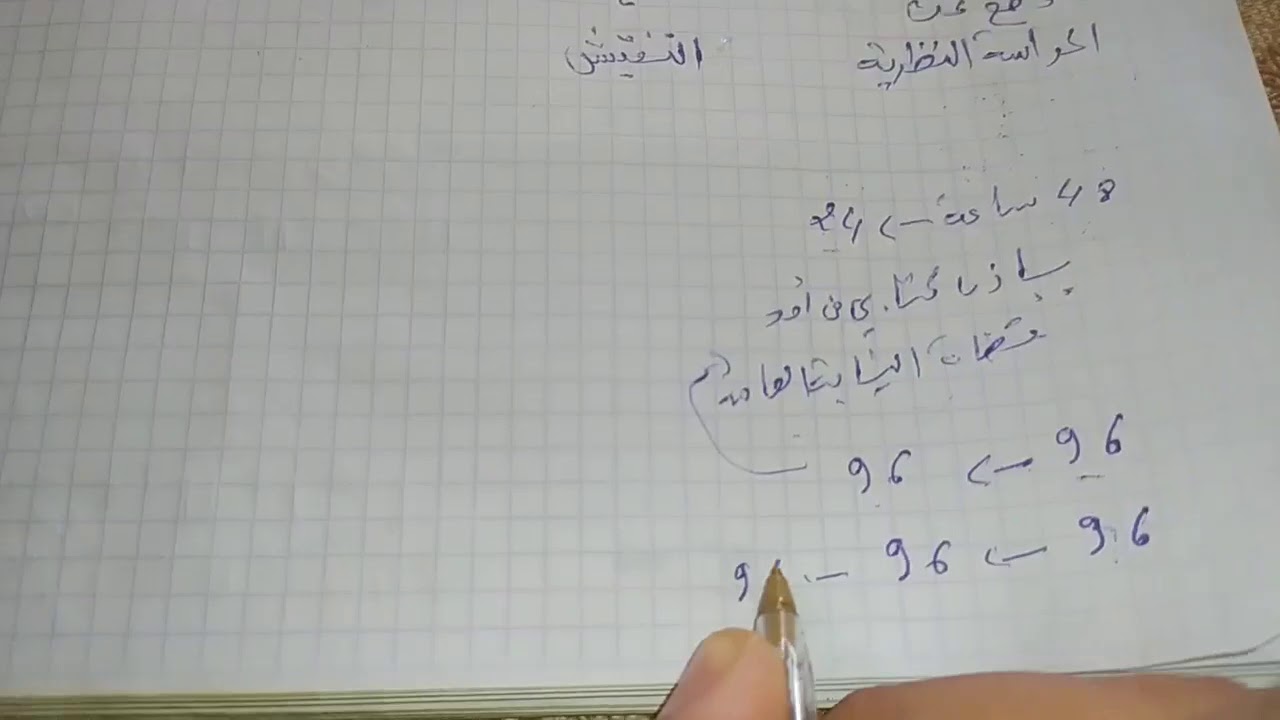 وضع تحت
الحراسة النظرية
التفتيش
48 ساعة ← 24
بإذن كتابي من أحد
قضاة النيابة العامة
96 ← 96
96 ← 96 – 9